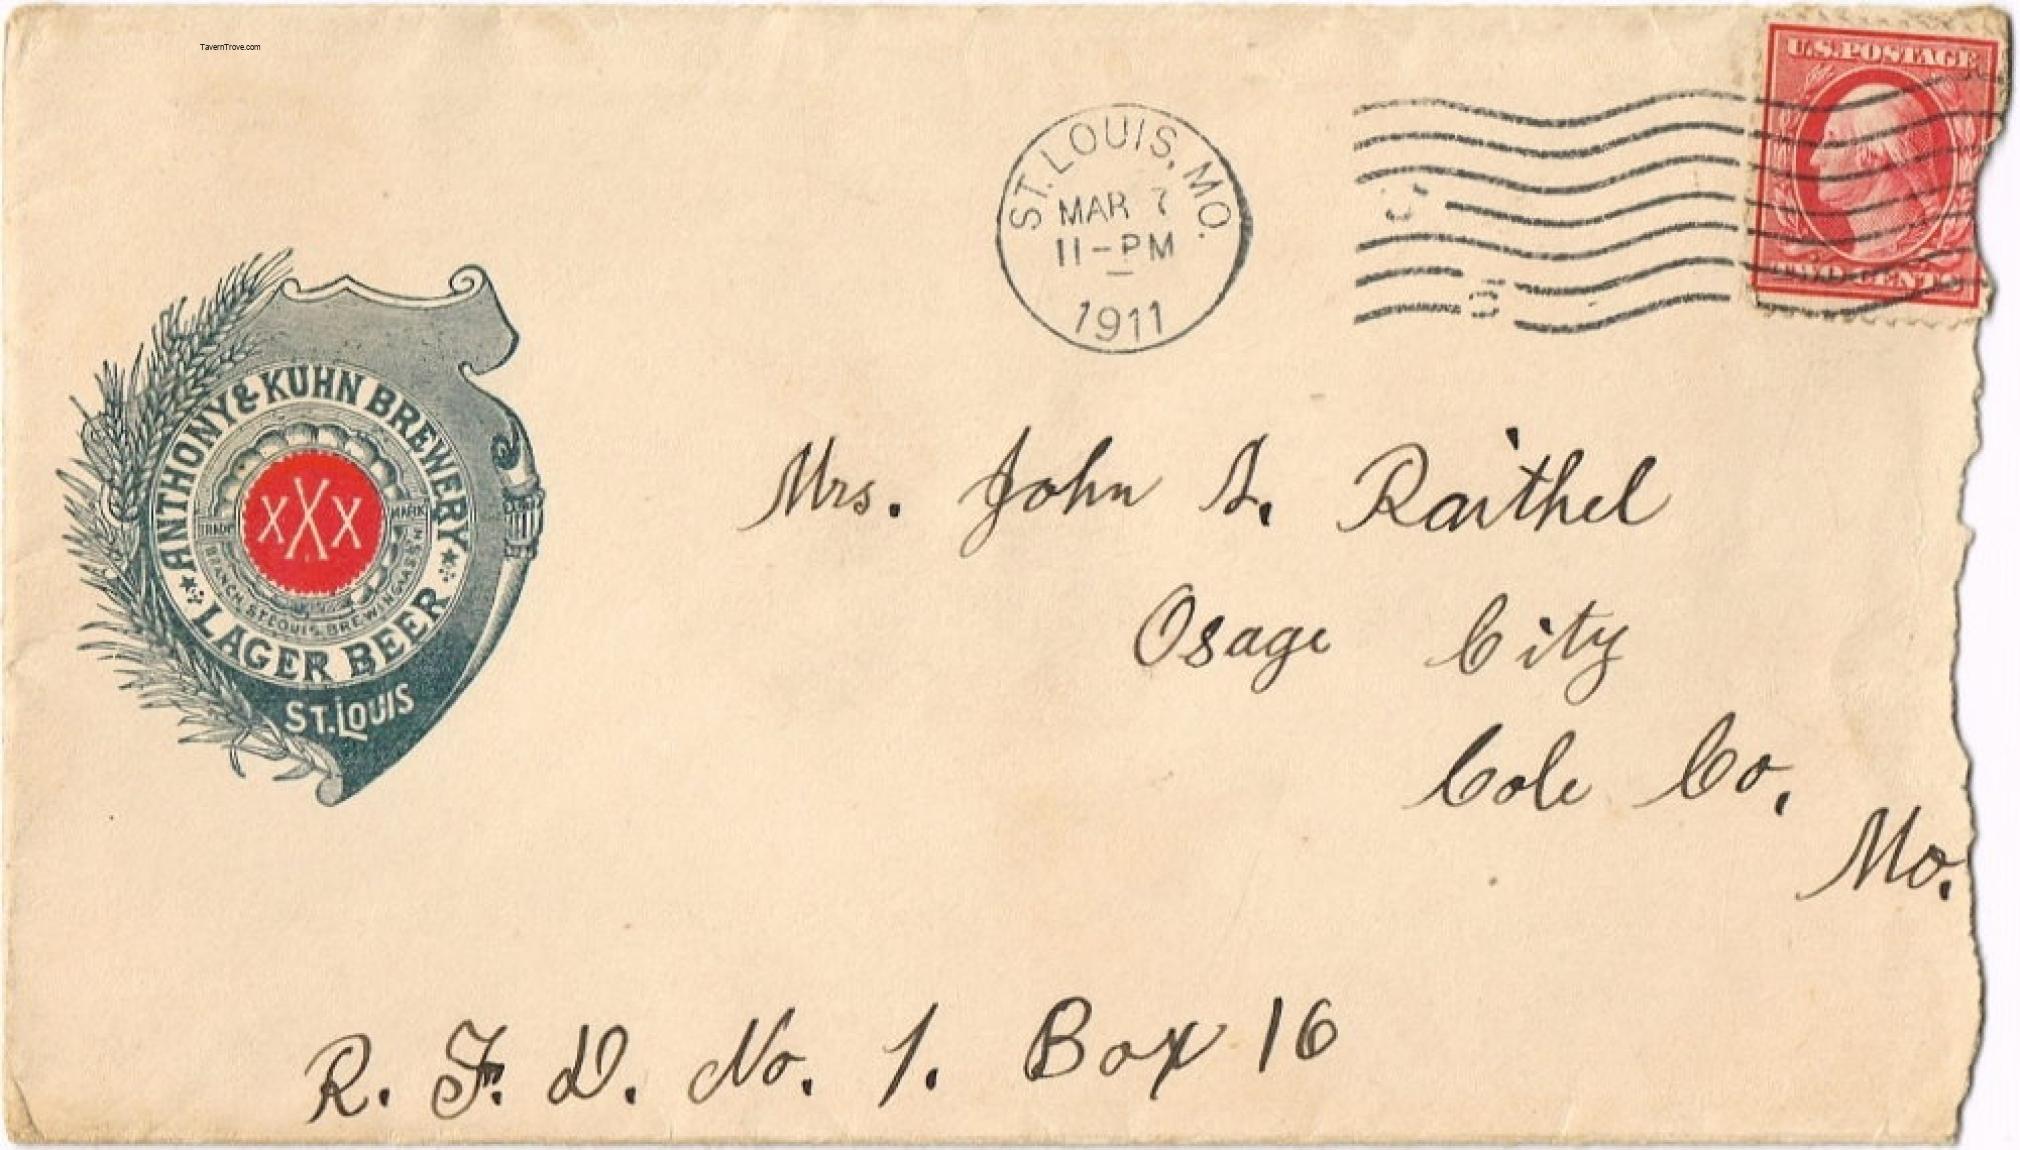 TavernTrove.com
U.S.POSTAGE
CENTS
ST. LOUIS, MO.
MAR 7
11-PM
1911
ANTHONY & KUHN BREWERY
XXX
TRADE MARK
BRANCH, ST. LOUIS, BREWING ASS'N
LAGER BEER
ST. LOUIS
Mrs. John Raithel
Osage City
Cole Co,
Mo.
R. F. D. No. 1. Box 16